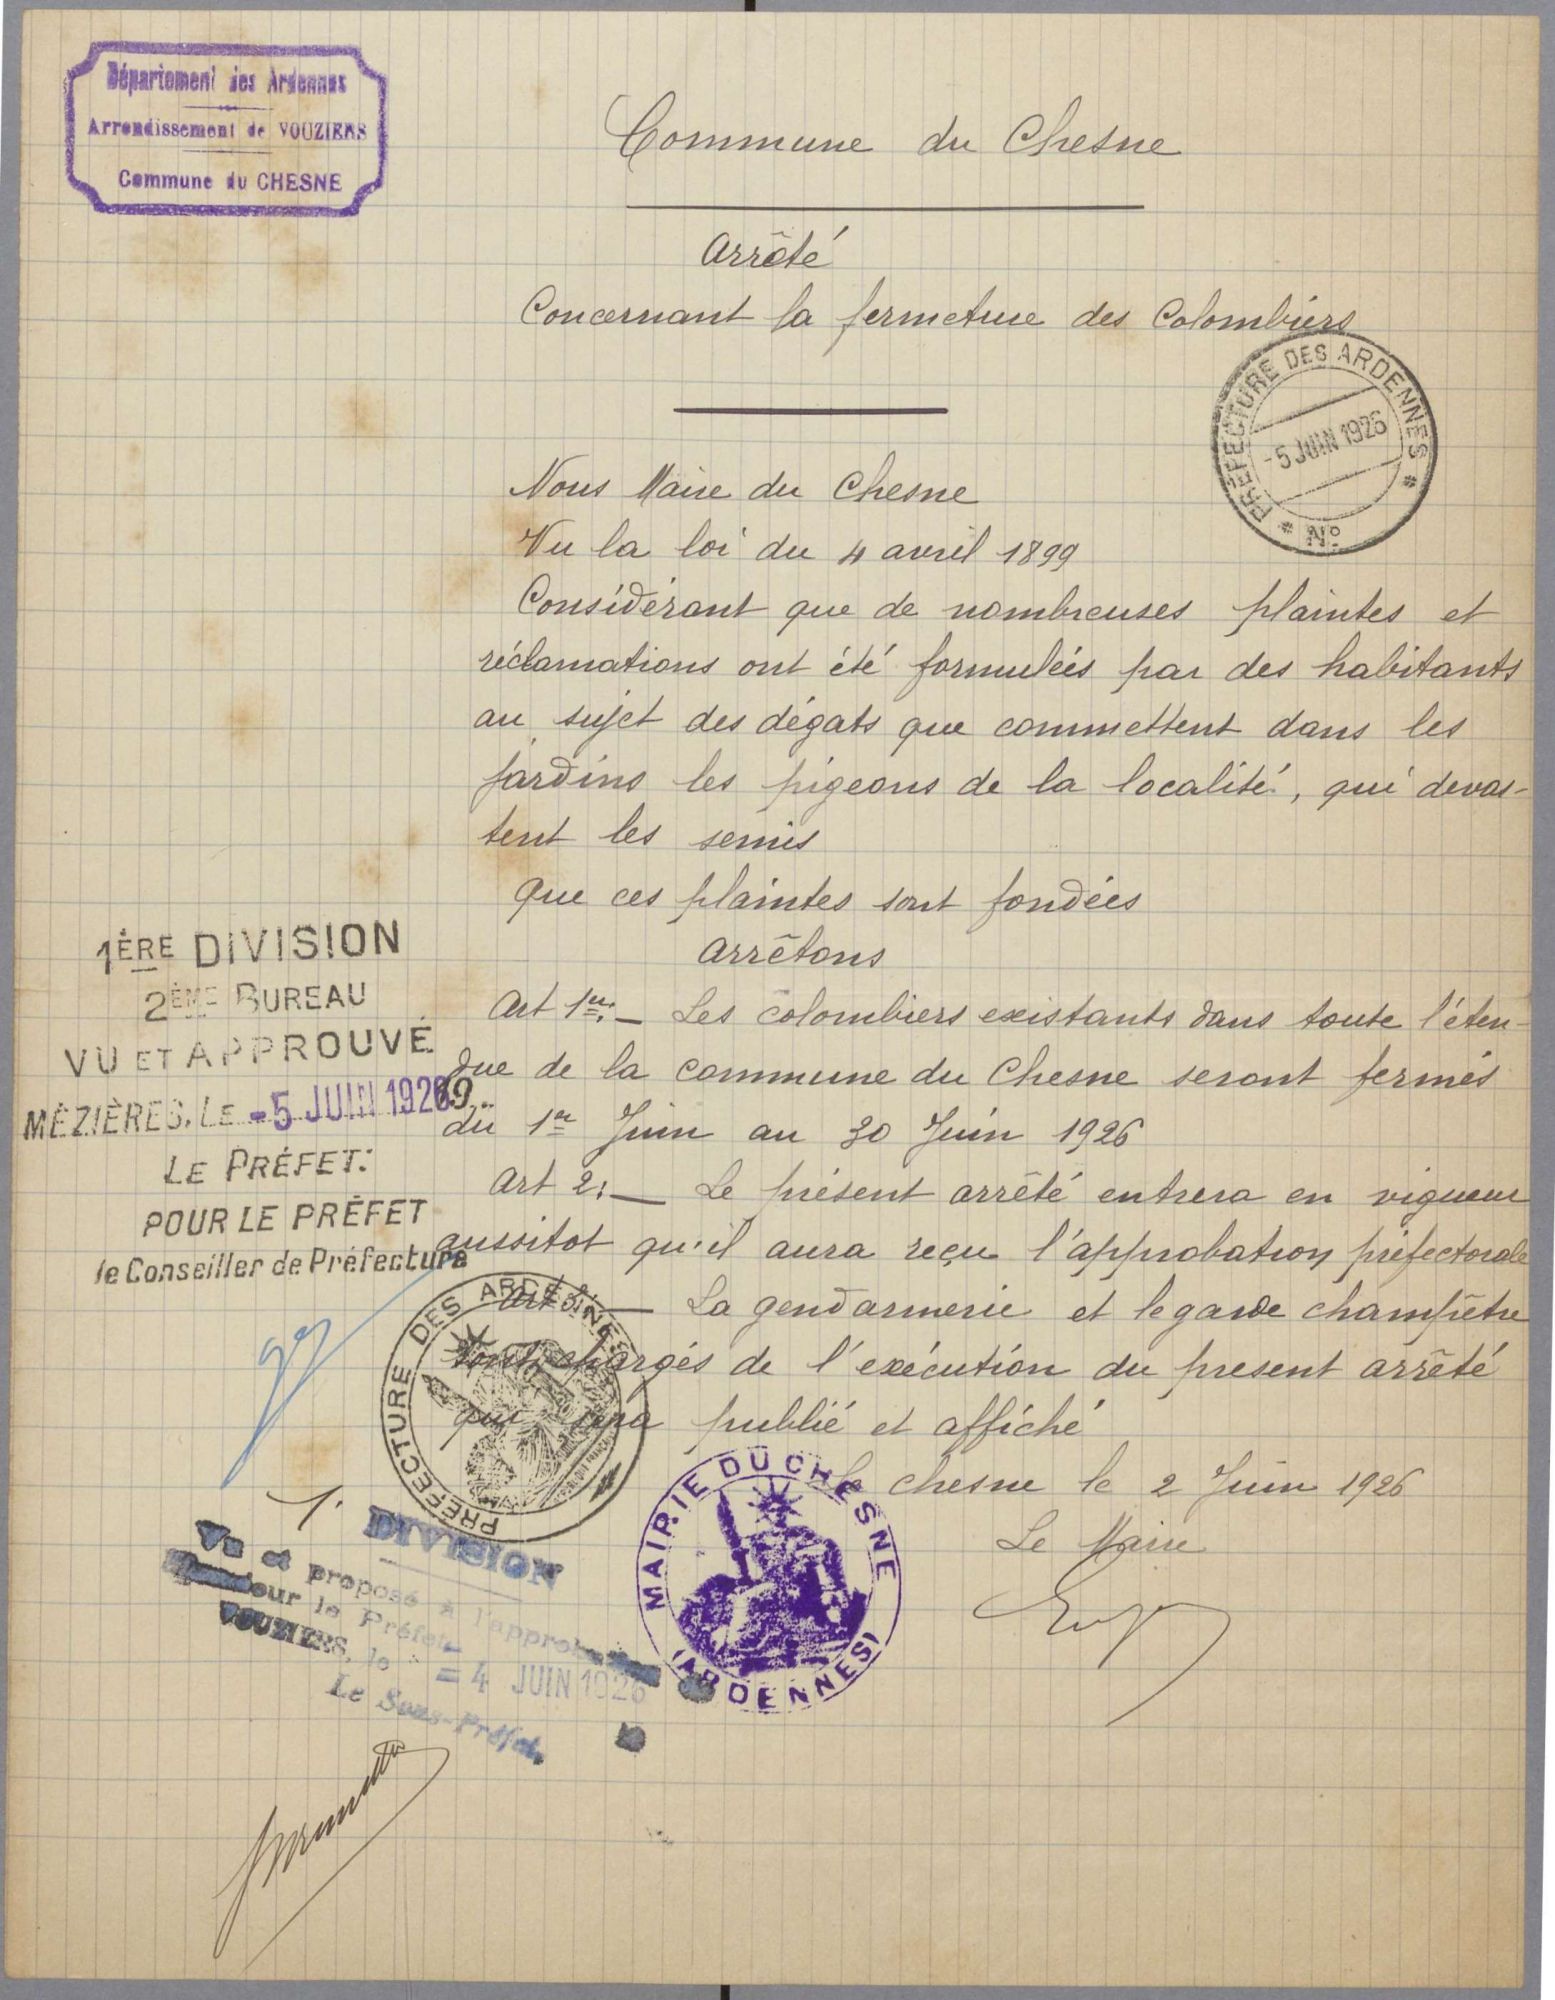 Département des Ardennes
Arrondissement de VOUZIERS
Commune du CHESNE
Commune du Chesne
Arrêté
Concernant la fermeture des Colombiers
PRÉFECTURE DES ARDENNES
-5 JUIN 1926
* No *
Nous Maire du Chesne
Vu la loi du 4 avril 1899
Considérant que de nombreuses plaintes et
réclamations ont été formulées par des habitants
au sujet des dégats que commettent dans les
jardins les pigeons de la localité, qui devas-
tent les semis
que ces plaintes sont fondées
Arrêtons
Art 1er. — Les colombiers existants dans toute l'éten-
due de la commune du Chesne seront fermés
du 1er Juin au 30 Juin 1926
Art 2. — Le présent arrêté entrera en vigueur
aussitot qu'il aura reçu l'approbation préfectorale
Art 3. — La gendarmerie et le garde champêtre
sont chargés de l'exécution du present arrêté
qui sera publié et affiché
Le chesne le 2 Juin 1926
Le Maire
1ÈRE DIVISION
2ÈME BUREAU
VU ET APPROUVÉ
MÉZIÈRES, LE -5 JUIN 1926
LE PRÉFET:
POUR LE PRÉFET
le Conseiller de Préfecture
PRÉFECTURE DES ARDENNES
MAIRIE DU CHESNE
(ARDENNES)
1. DIVISION
Vu et proposé à l'approbation
VOUZIERS, le = 4 JUIN 1926
Le Sous-Préfet,